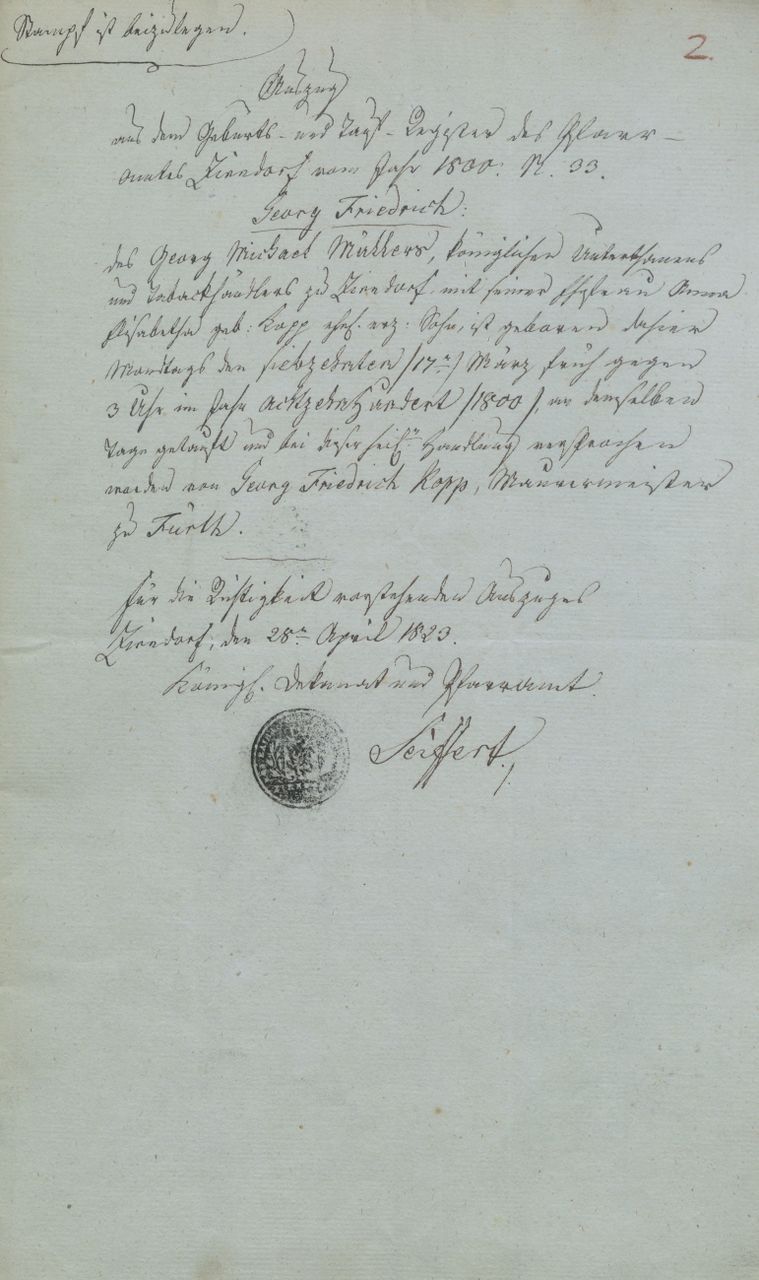 Stempf ist beizulegen.
2.
Auszug
aus dem Geburts- und Tauf-Register des Pfarr-
amtes Zirndorf vom Jahr 1800. N. 33.
Georg Friedrich:
des Georg Michael Müllers, königlichen Unterthanens
und Tabackhändlers zu Zirndorf mit seiner Ehefrau Anna
Elisabetha geb: Kopp ehel. erz: Sohn, ist geboren dahier
Mondtags den siebzehnten /17n/ März früh gegen
3 Uhr im Jahr achtzehnhundert /1800/, an demselben
Tage getauft und bei dieser heil. Handlung versprochen
worden von Georg Friedrich Kopp, Maurermeister
zu Fürth.
Für die Richtigkeit vorstehenden Auszuges
Zirndorf, den 28n April 1823.
Königl. Dekanat und Pfarramt.
Seiffert.